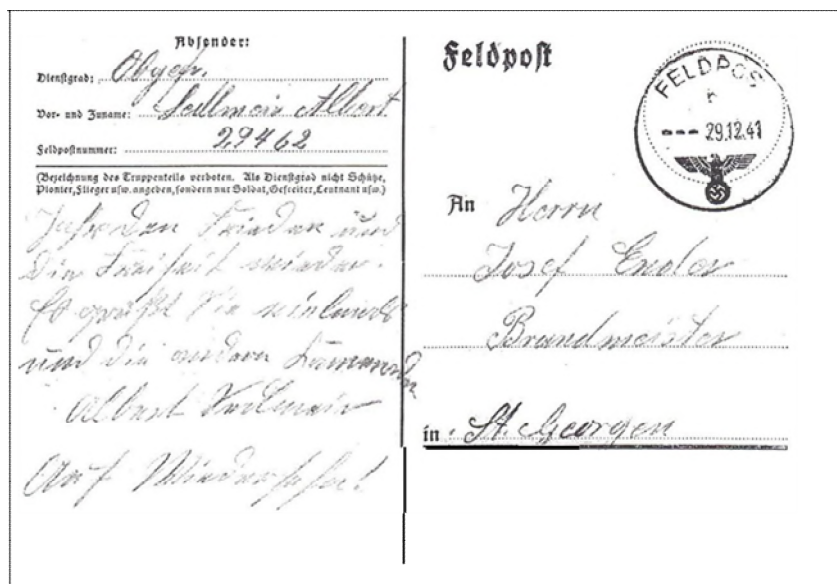 Absender:
Dienstgrad: Obgefr.
Vor- und Zuname: Albert
Feldpostnummer: 29462
(Bezeichnung des Truppenteils verboten. Als Dienstgrad nicht Schütze,
Pionier, Flieger usw. angeben, sondern nur Soldat, Gefreiter, Leutnant usw.)
den Frieden und
die Freiheit wieder.
Es grüßt Sie vielmals
und die andern Kameraden
Albert
Auf Wiedersehen!
Feldpost
FELDPOS
--- 29.12.41
An Herrn
Josef Endler
Brandmeister
in St. Georgen